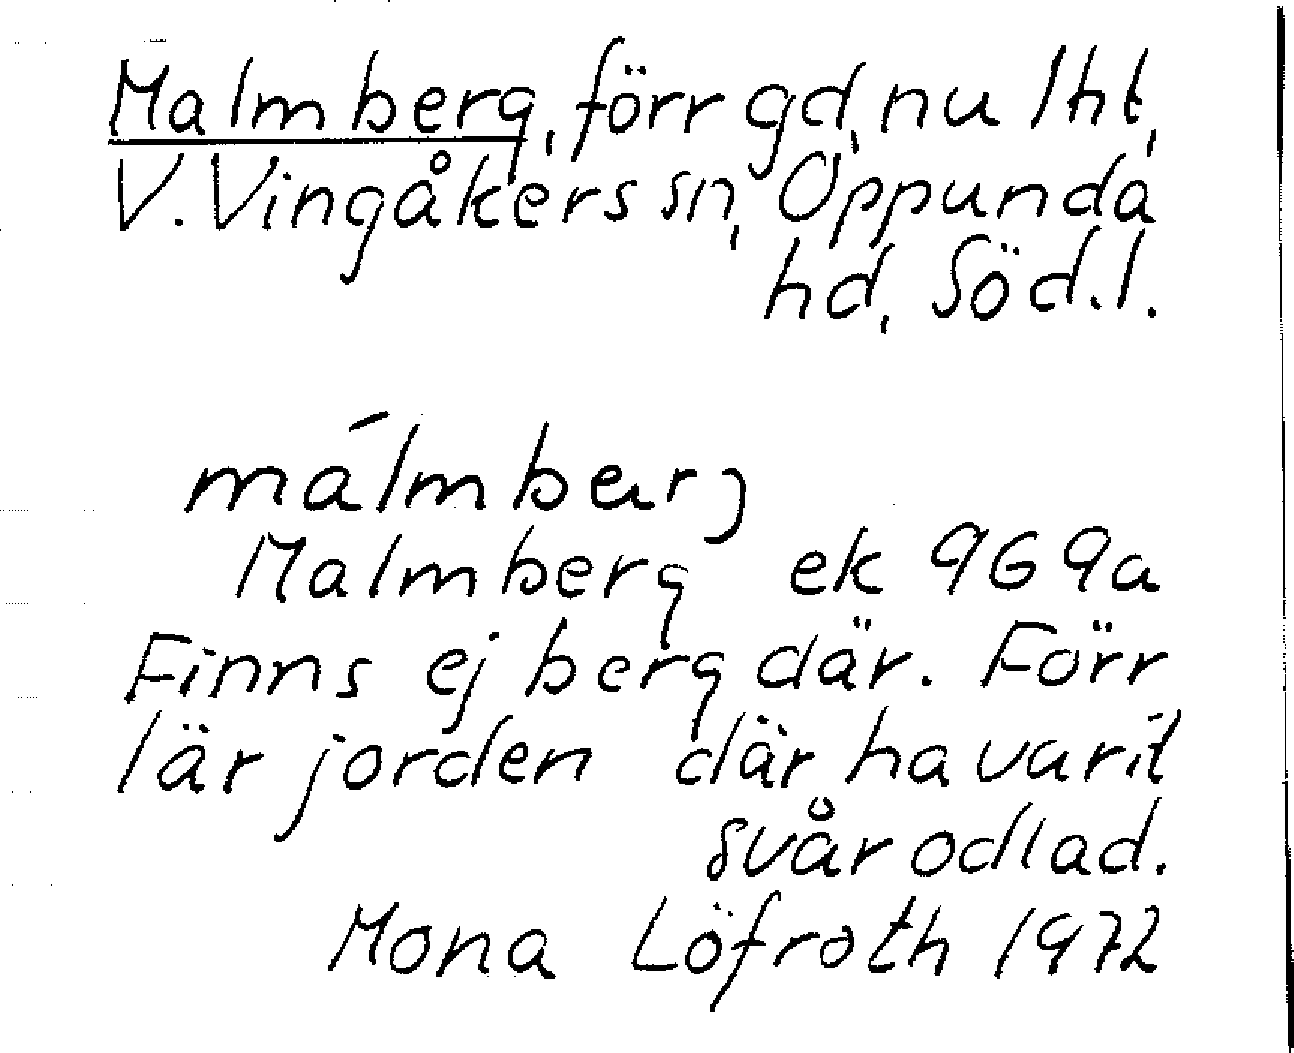 Malmberg, förr gd, nu lht,
V. Vingåkers sn, Oppunda
hd, Söd.l.
málmbærj
Malmberg ek 9G9a
Finns ej berg där. Förr
lär jorden där ha varit
svårodlad.
Mona Löfroth 1972